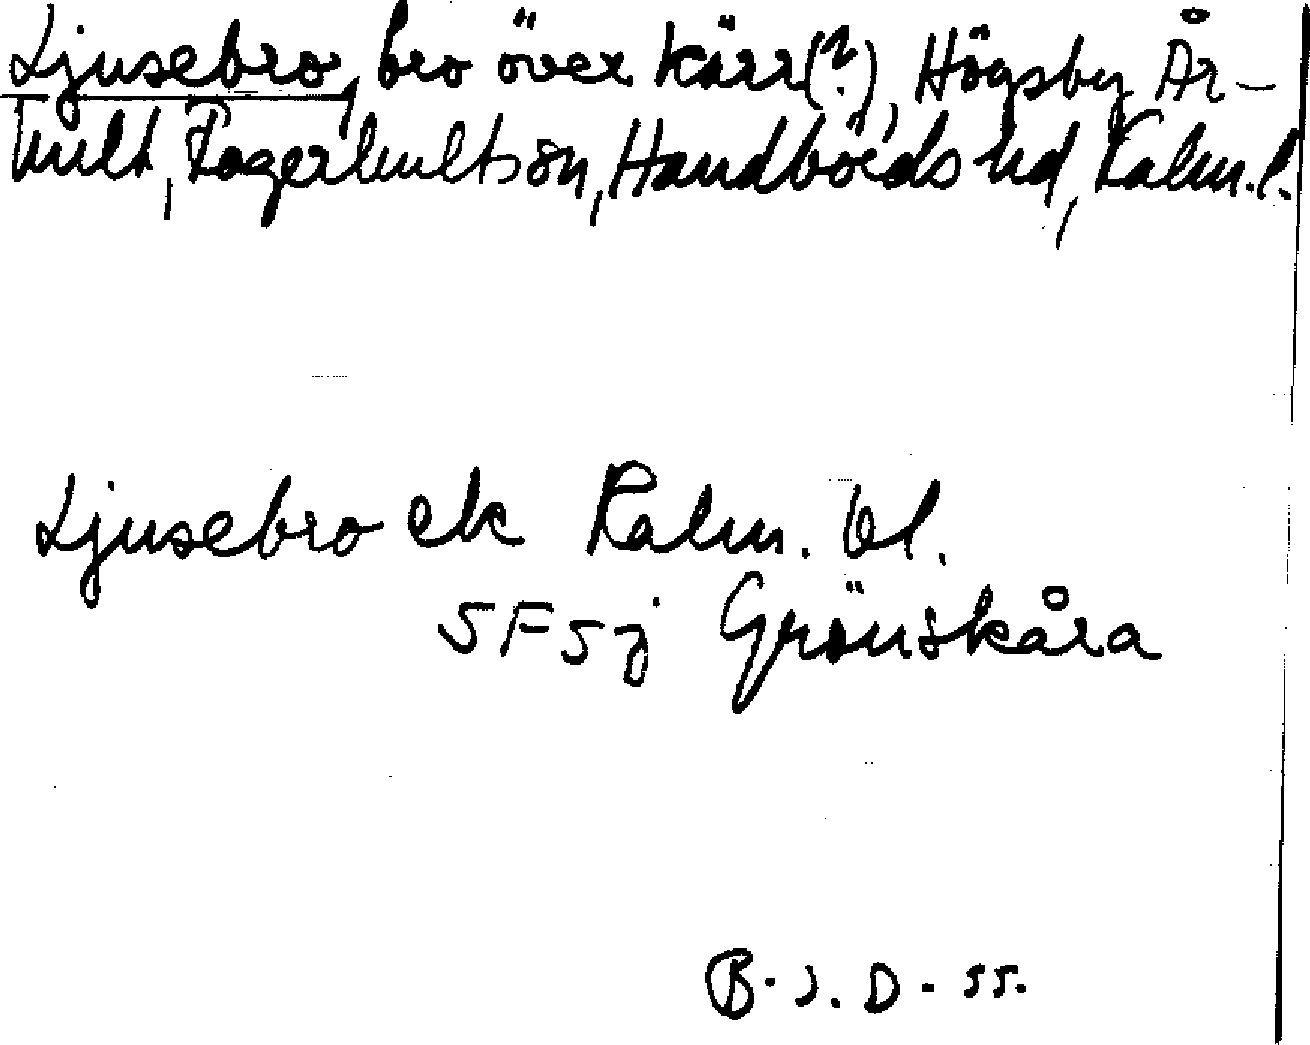 Ljusebro, bro över kärr(?), Högsby År-
hult, Fagerhults sn, Handbörds hd, Kalm. l.
Ljusebro ek Kalm. bl.
5F5j Grönskåra
B. J. D. 55.